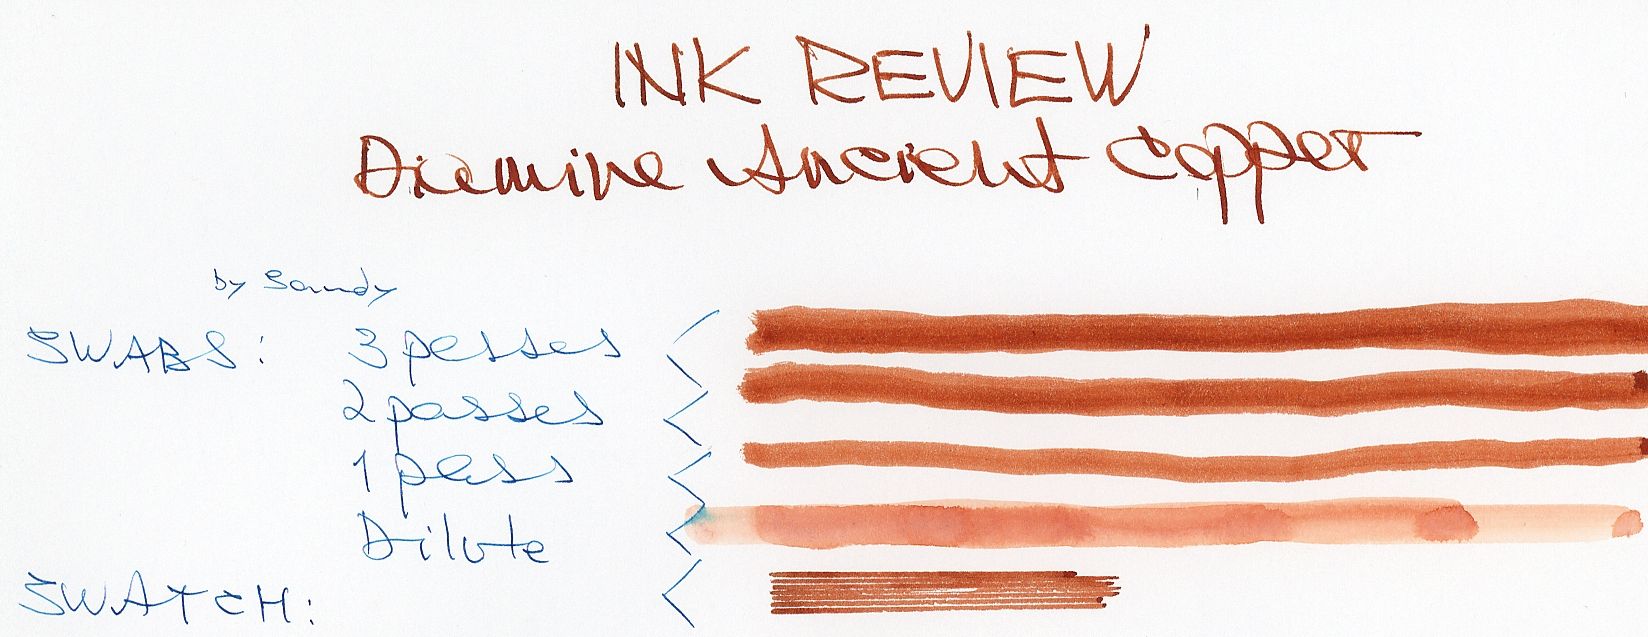 INK REVIEW
Diamine Ancient Copper
by Sandy
SWABS: 3 passes
2 passes
1 pass
Dilute
SWATCH: